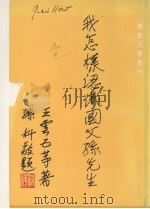 Jui How
我怎樣認識國父孫先生
王雲五等著
孫科敬題